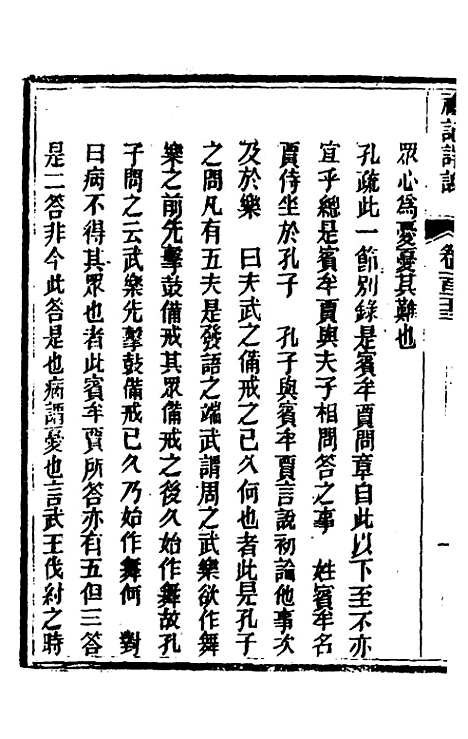 禮記詳說
卷一百三十三
眾心為憂憂其難也
孔疏此一節別錄是賓牟賈問章自此以下至不亦
宜乎總是賓牟賈與夫子相問答之事　姓賓牟名
賈侍坐於孔子　孔子與賓牟賈言說初論他事次
及於樂　曰夫武之備戒之已久何也者此是孔子
之問凡有五夫是發語之端武謂周之武樂欲作舞
樂之前先擊鼓備戒其眾備戒之後久始作舞故孔
子問之云武樂先擊鼓備戒已久乃始作舞何　對
曰病不得其眾也者此賓牟賈所答亦有五但三答
是二答非今此答是也病謂憂也言武王伐紂之時